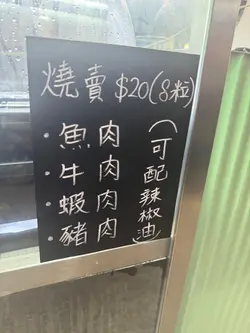 燒賣 $20(8粒)
·魚肉
·牛肉
·蝦肉
·豬肉
(可配辣椒油)